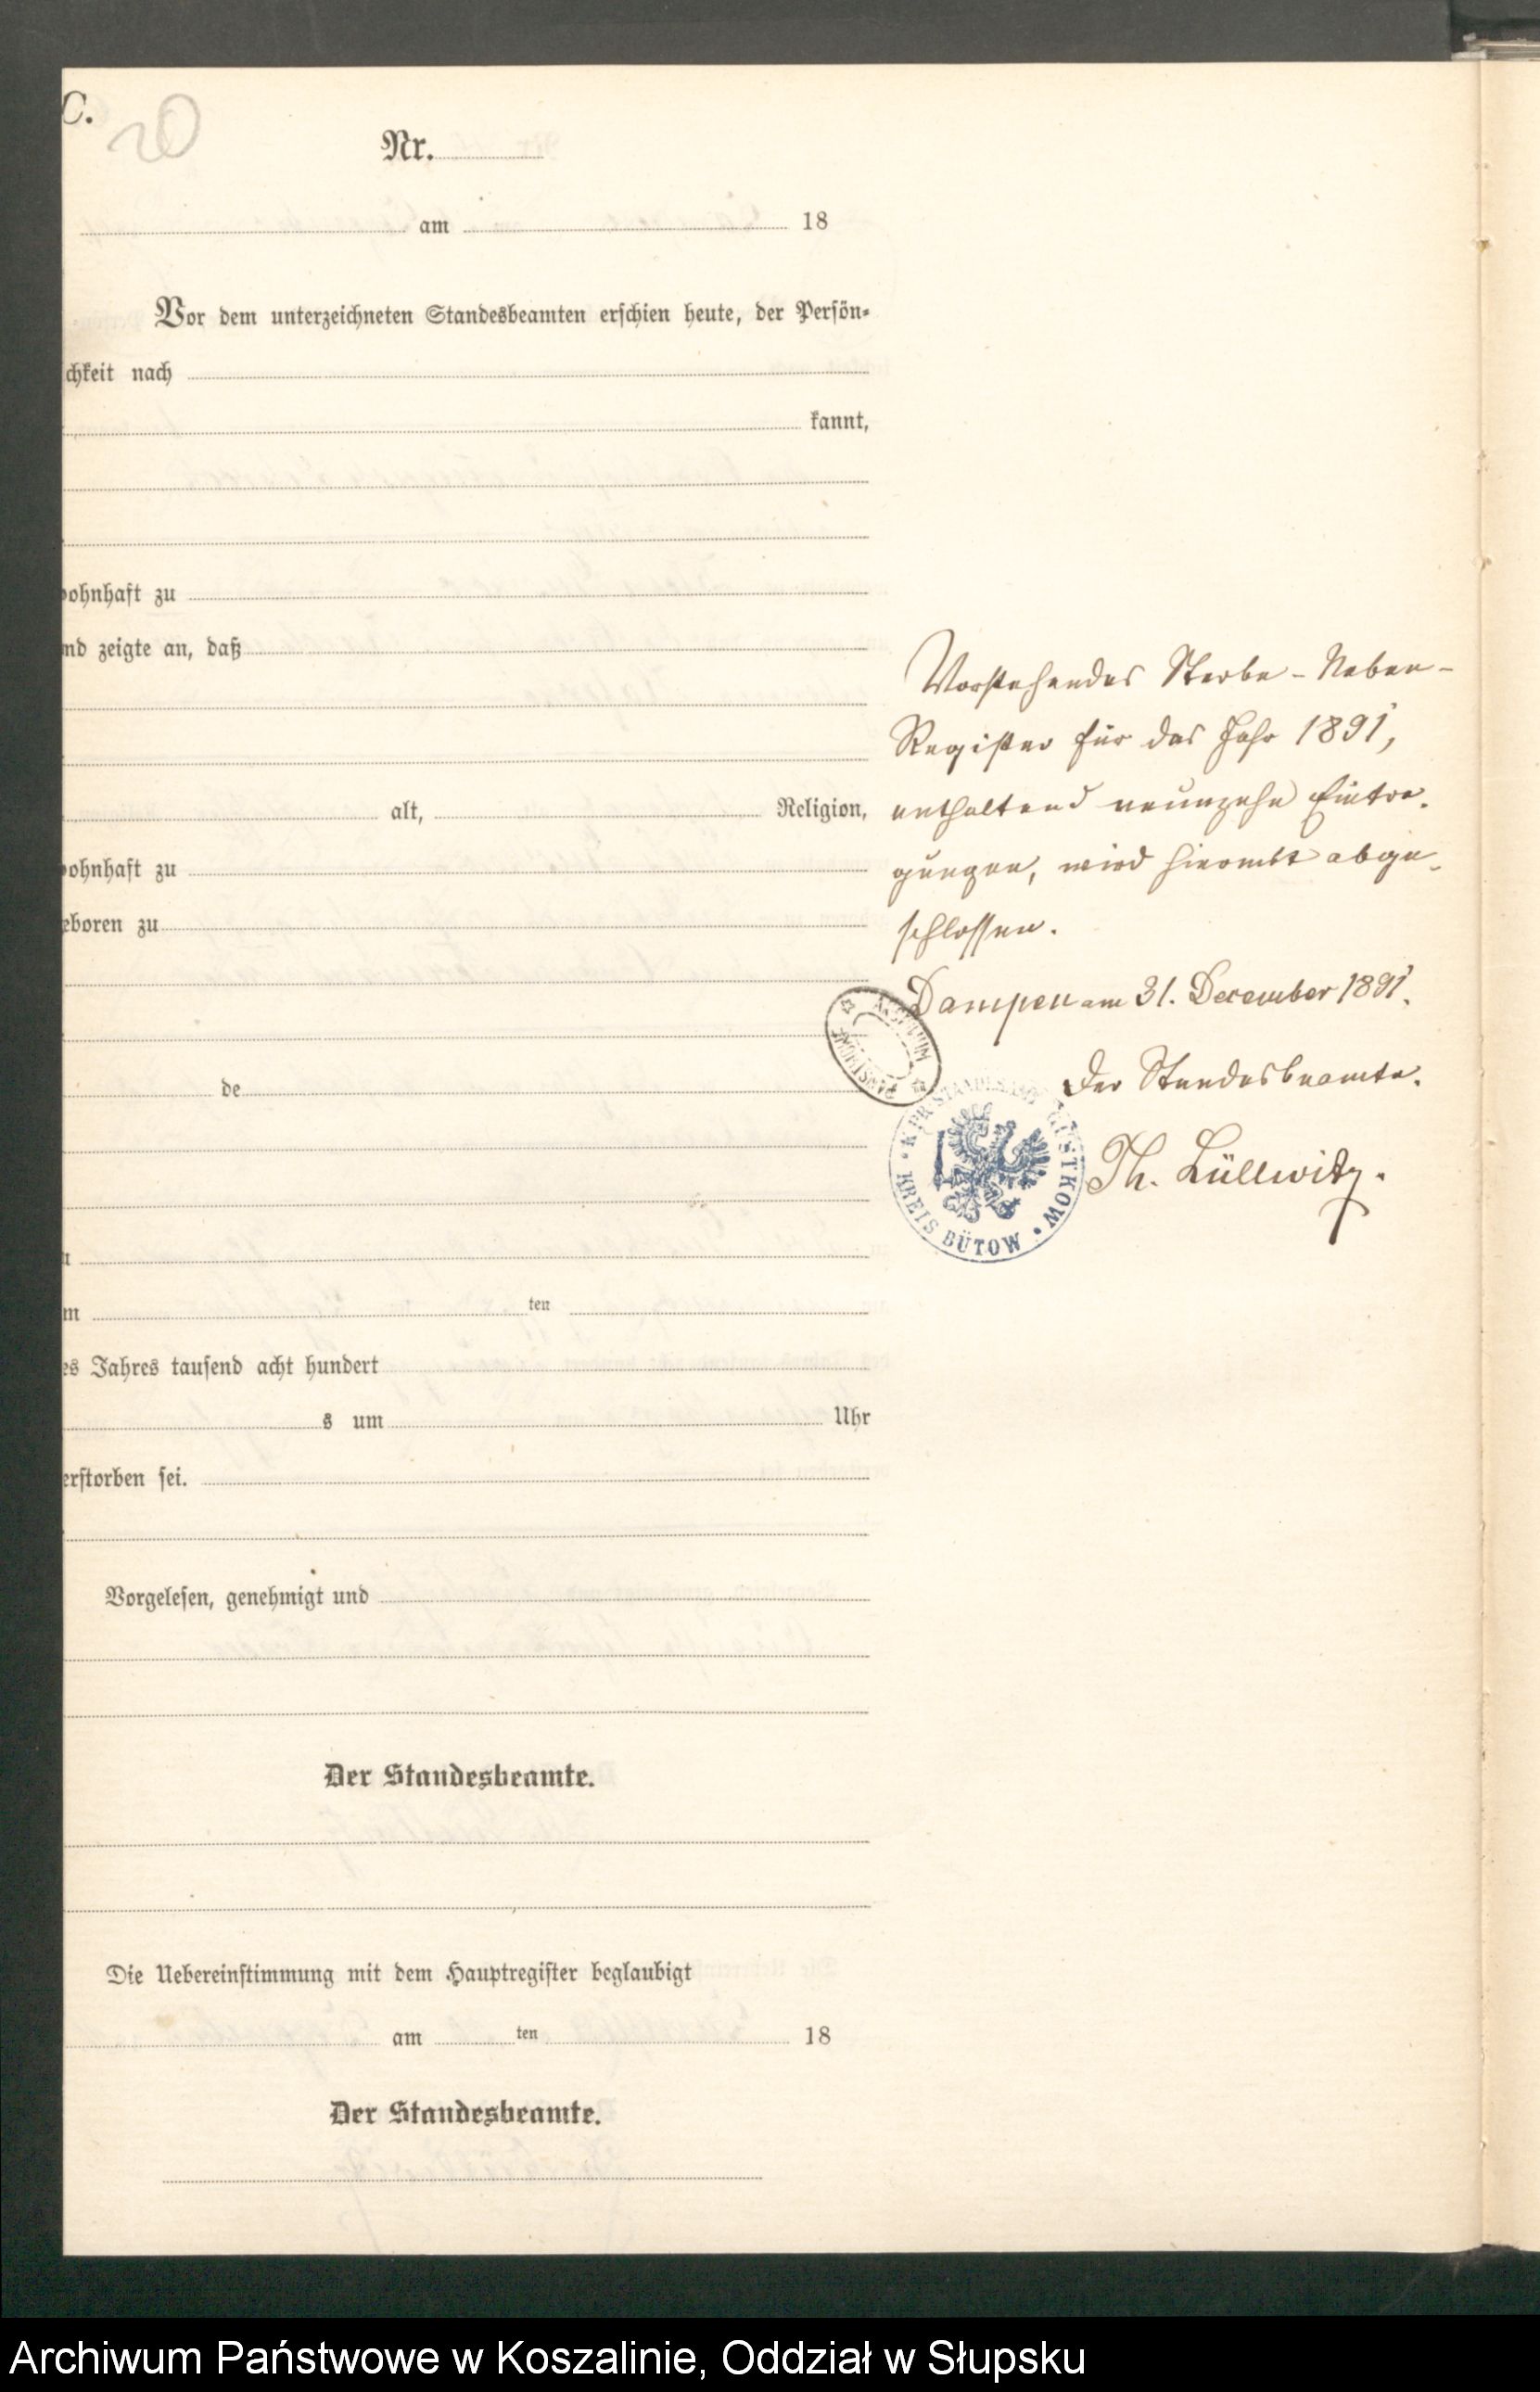 C.
20
Nr.
am 18
Vor dem unterzeichneten Standesbeamten erschien heute, der Persön-
chkeit nach
kannt,
ohnhaft zu
nd zeigte an, daß
alt, Religion,
ohnhaft zu
eboren zu
de
m ten
es Jahres tausend acht hundert
s um Uhr
erstorben sei.
Vorgelesen, genehmigt und
Der Standesbeamte.
Die Uebereinstimmung mit dem Hauptregister beglaubigt
am ten 18
Der Standesbeamte.
Vorstehendes Sterbe-Neben-
Register für das Jahr 1891,
enthaltend neunzehn Eintra-
gungen, wird hiermit abge-
schlossen.
Dampen am 31. December 1891.
Der Standesbeamte.
Th. Lüllwitz.
ARCHIWUM PAŃSTWOWE
K. PR. STANDESAMT GUSTKOW
KREIS BÜTOW
Archiwum Państwowe w Koszalinie, Oddział w Słupsku